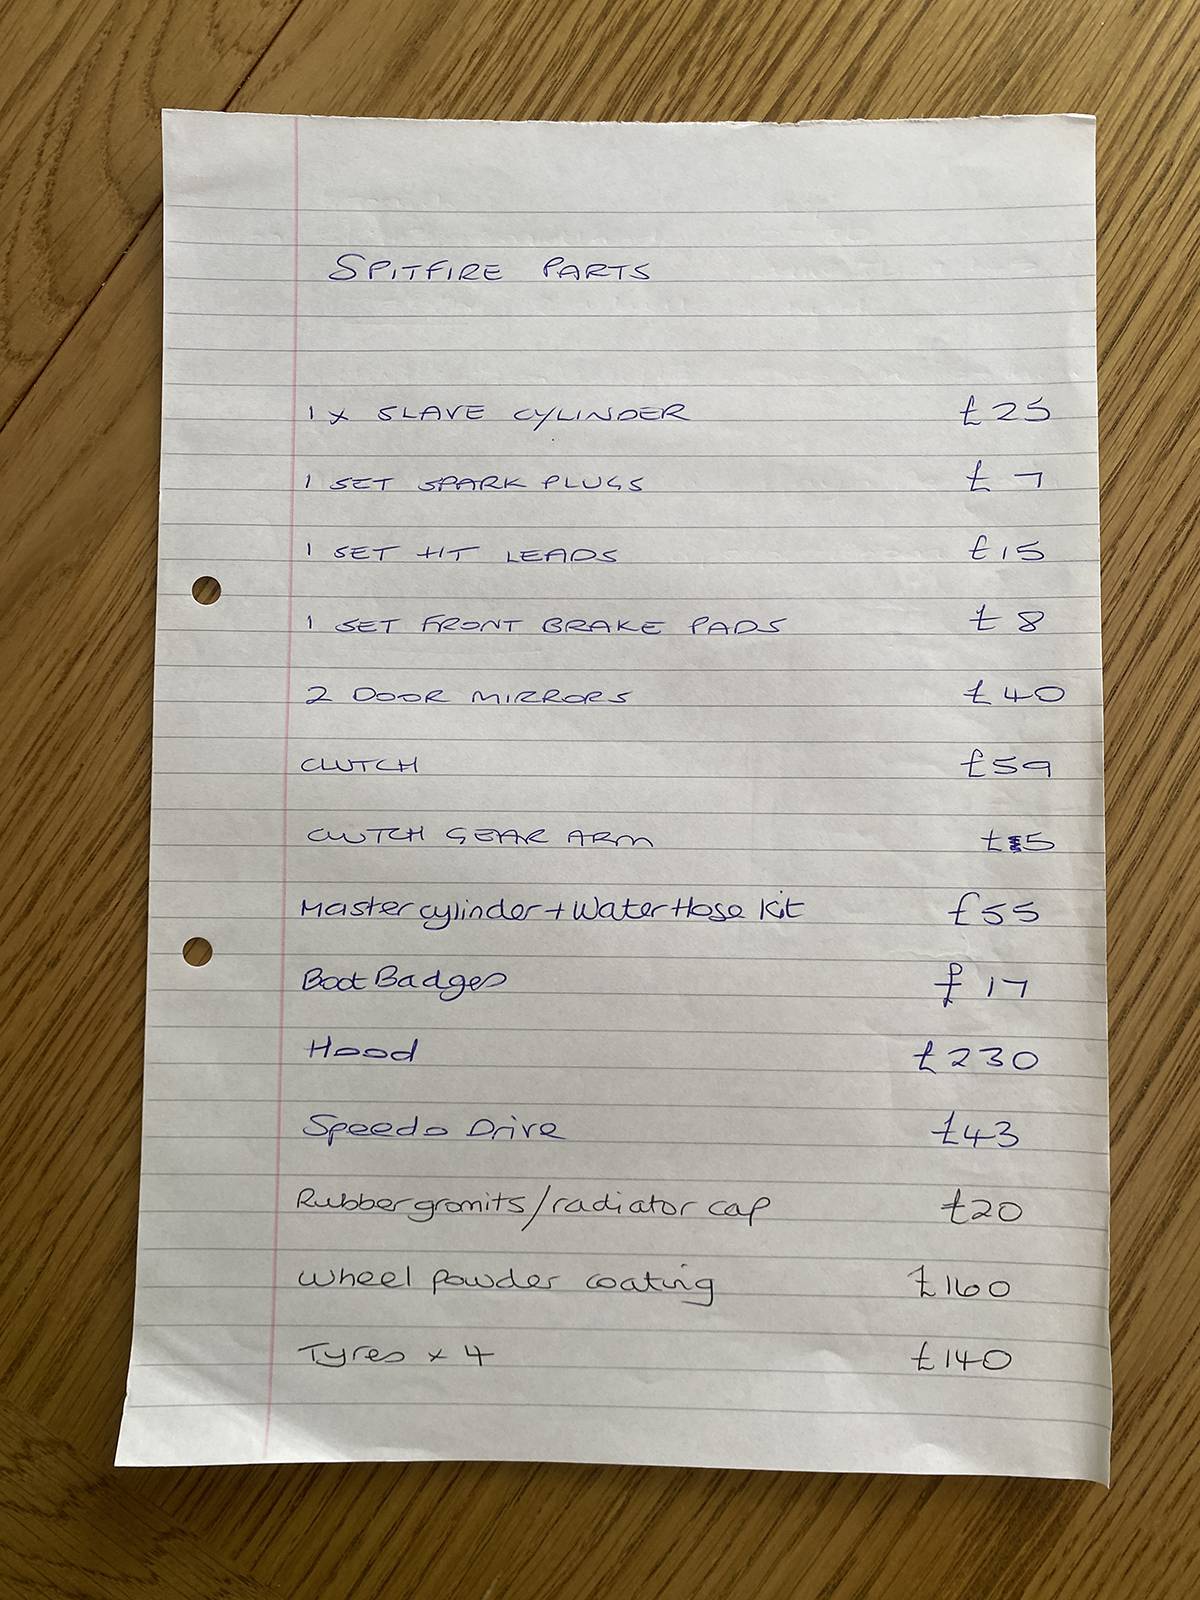 SPITFIRE PARTS
1 x SLAVE CYLINDER £25
1 SET SPARK PLUGS £7
1 SET HT LEADS £15
1 SET FRONT BRAKE PADS £8
2 DOOR MIRRORS £40
CLUTCH £59
CLUTCH GEAR ARM £5
Master cylinder + Water Hose Kit £55
Boot Badges £17
Hood £230
Speedo Drive £43
Rubber gromits/radiator cap £20
Wheel powder coating £160
Tyres x 4 £140